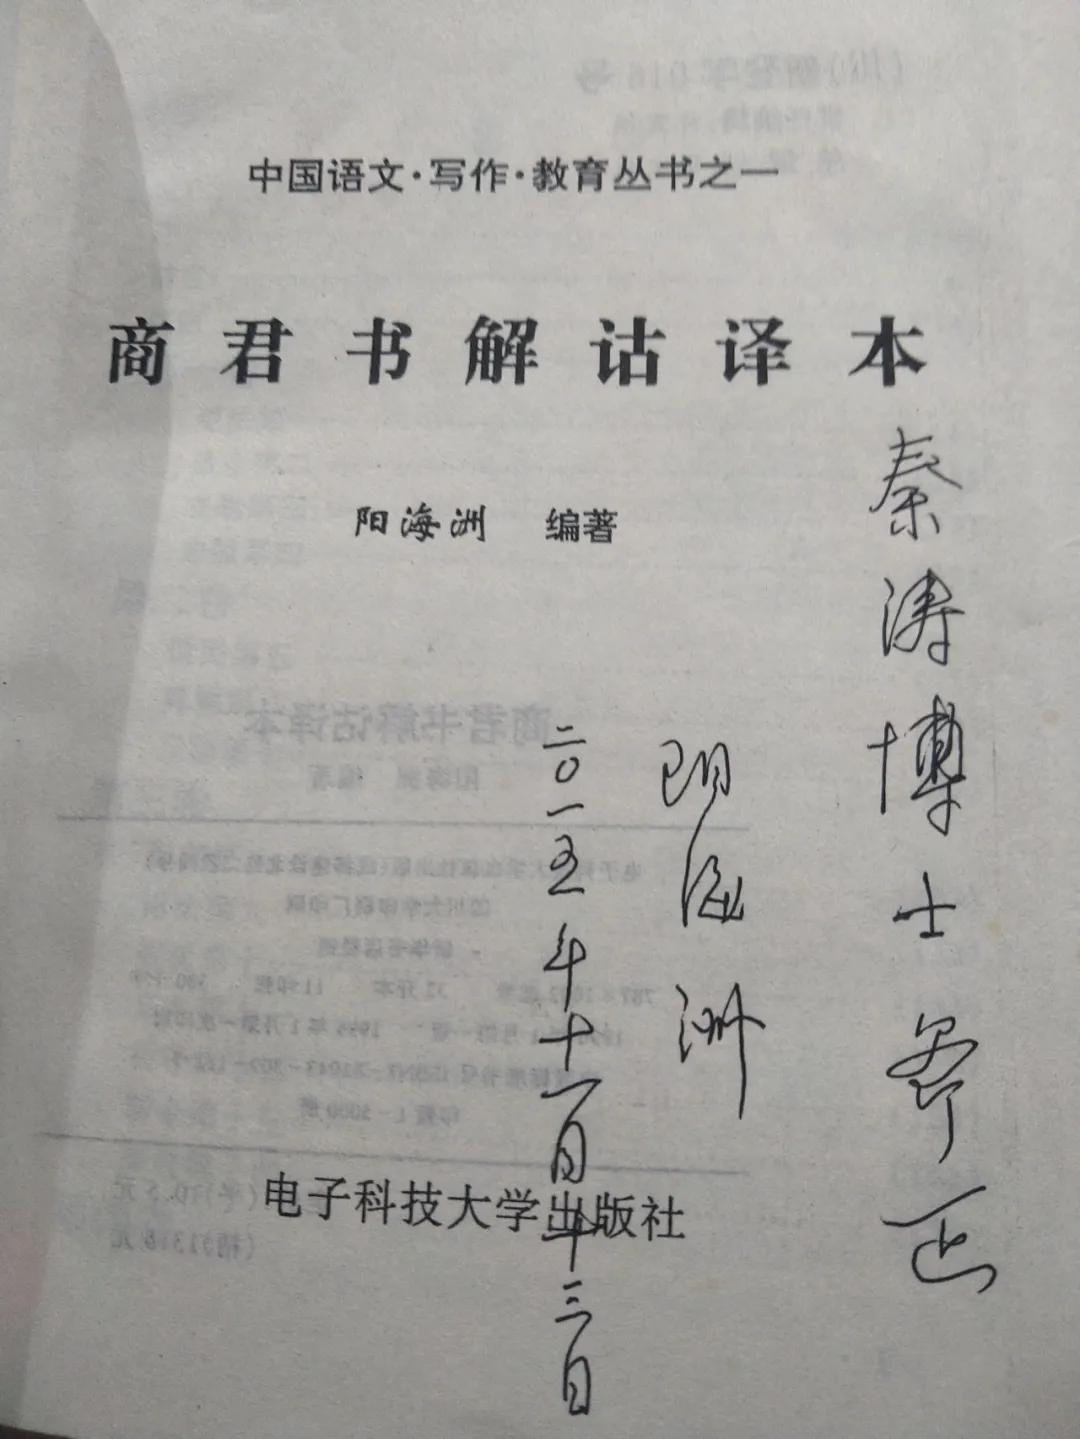 中国语文·写作·教育丛书之一
商君书解诂译本
阳海洲 编著
秦涛博士斧正
阳海洲
二〇一五年十一月十三日
电子科技大学出版社